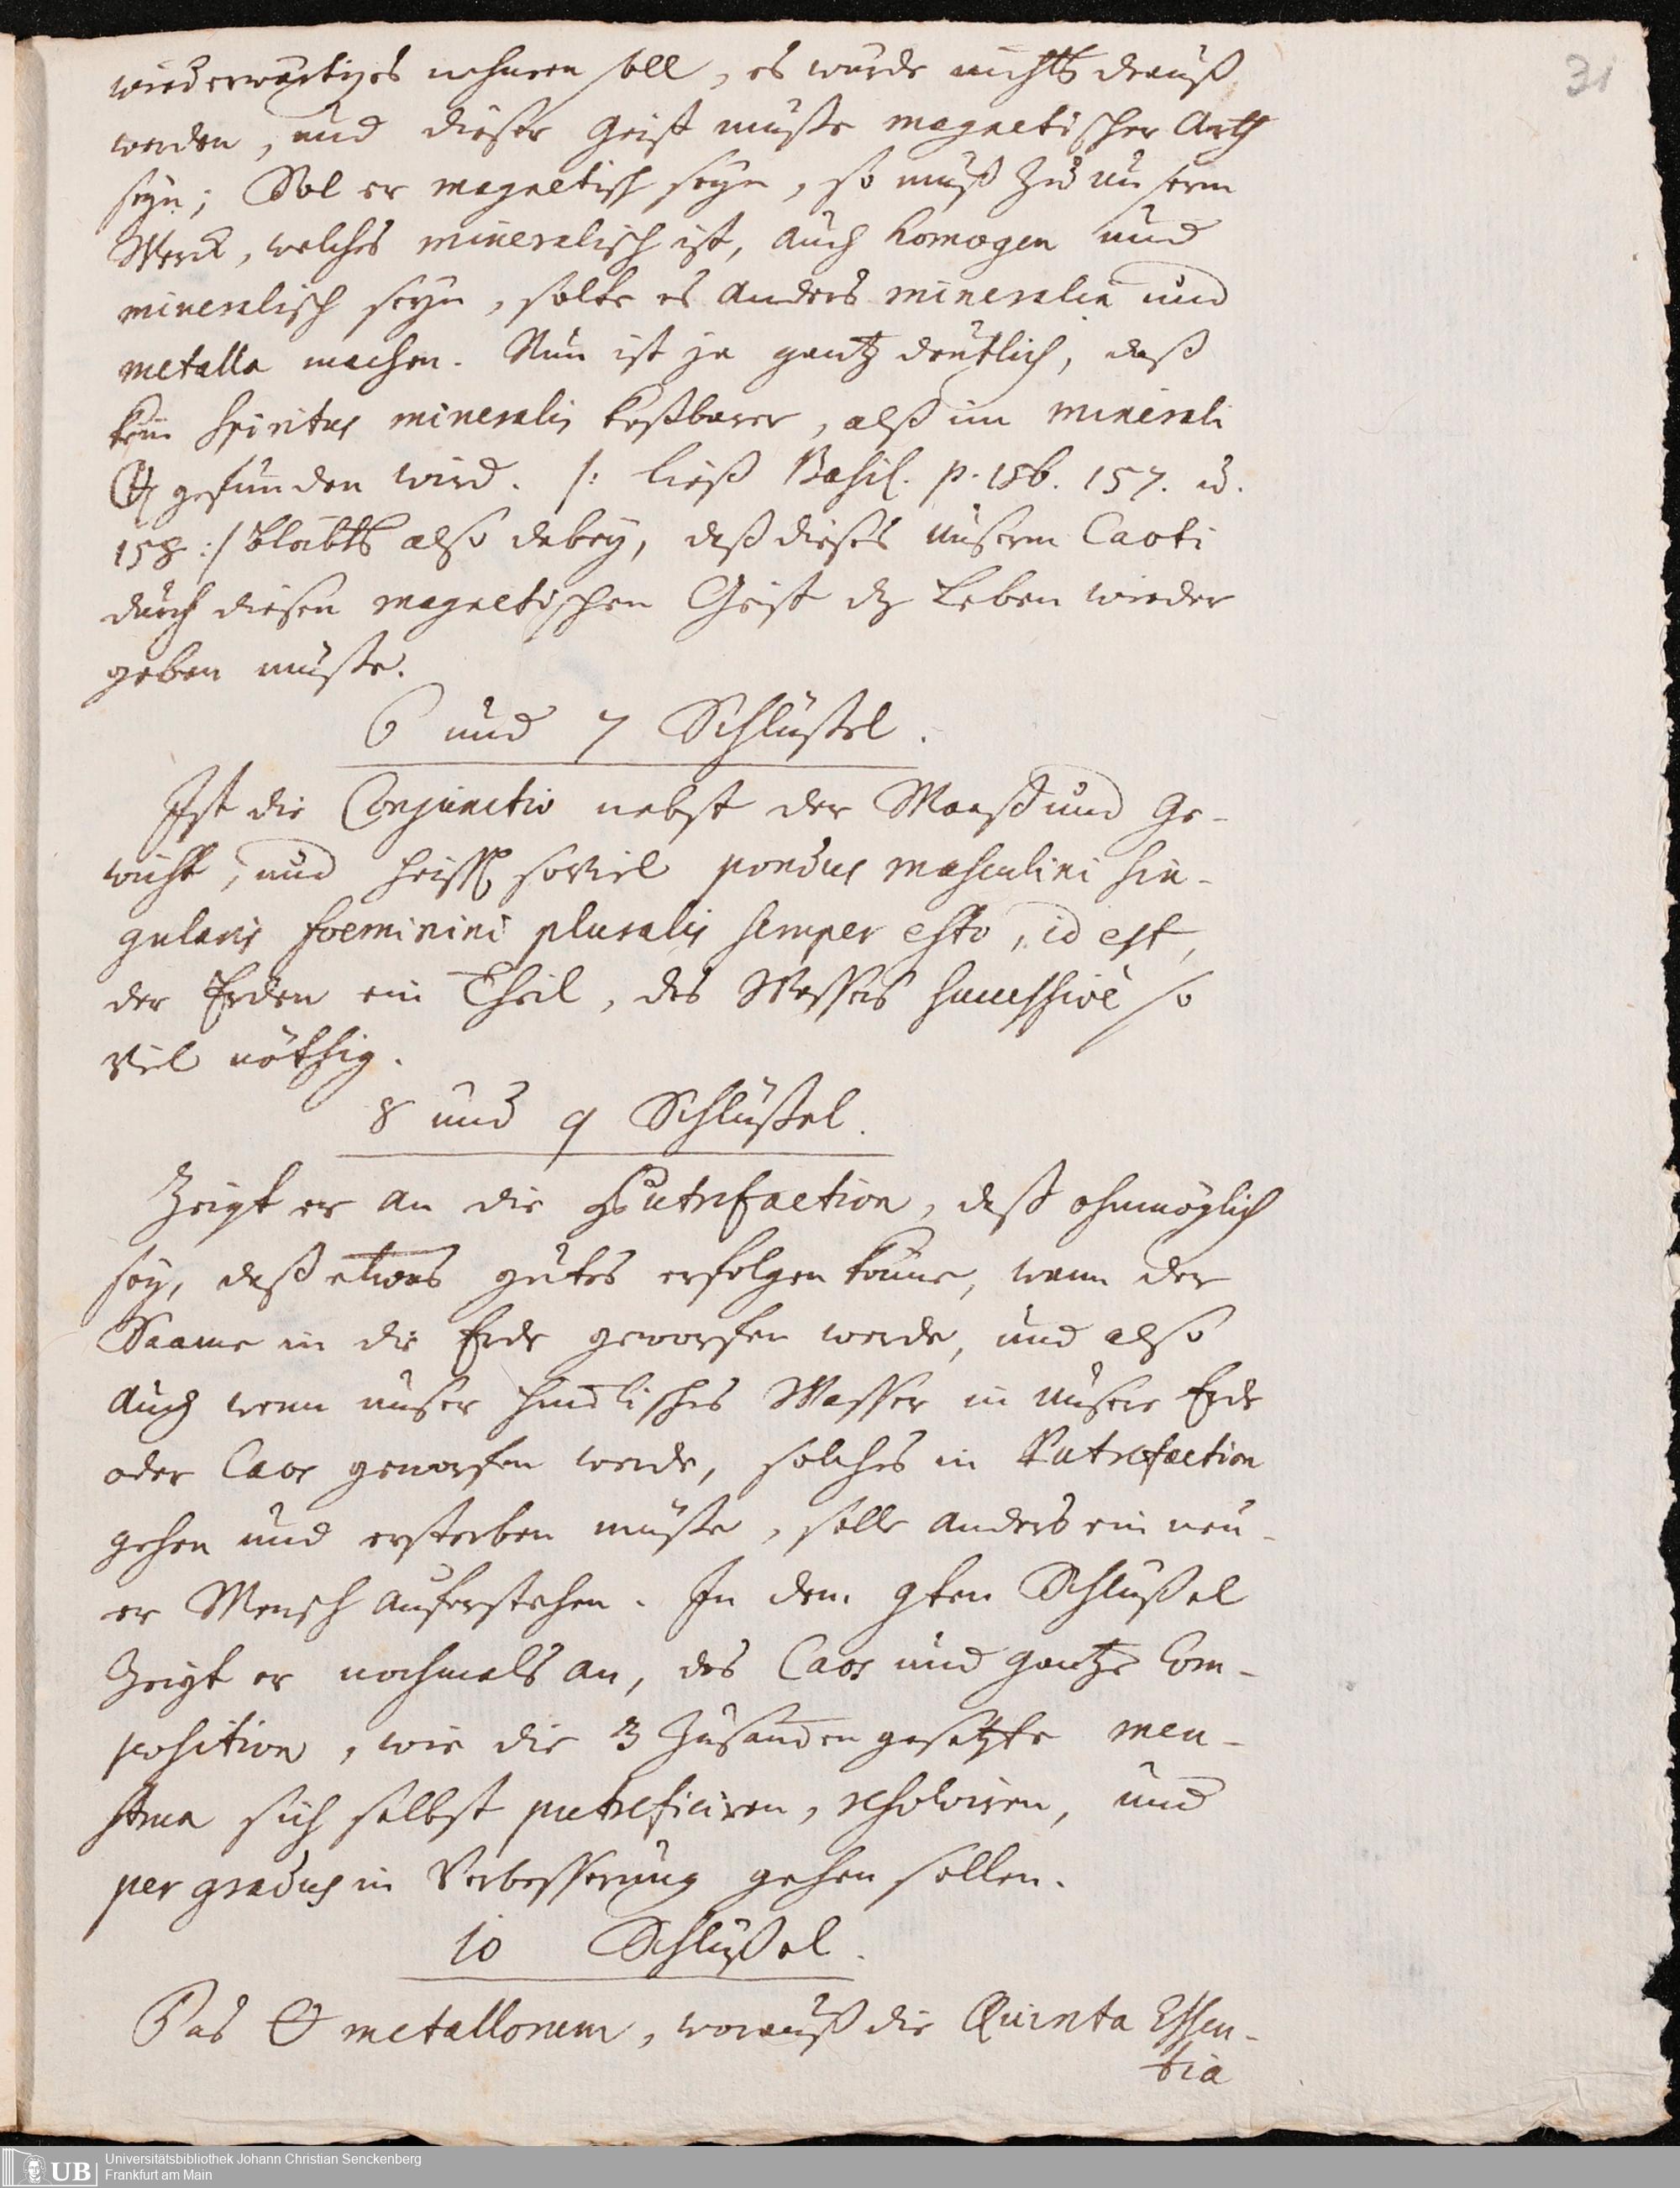 31
wiederwärtiges nehmen soll, es wurde nichts drauß
werden, und dieser Geist muste magnetischer Arth
seyn; Sol er magnetisch seyn, so muß Zu unserm
Werck, welches mineralisch ist, auch homogen und
mineralisch seyn, solte es anders mineralia und
metalla machen. Nun ist ja gantz deutlich, daß
kein Spiritus mineralis kostbarer, alß im minerali
gefunden wird. /: ließ Basil. p. 156. 157. u.
158 :/ bleibts also dabey, daß dieses unserm Caoti
durch diesen magnetischen Geist dz Leben wieder
geben müste.
6 und 7 Schlüßel.
Ist die Conjunctio nebst der Maaß und Ge-
wicht, und heist soviel pondus masculini sin-
gularis foeminini pluralis semper esto, id est,
der Erden ein Theil, des Wassers successivè so
viel nöthig.
8 und 9 Schlüßel.
Zeigt er an die Putrefaction, daß ohnmöglich
sey, daß etwas gutes erfolgen könne, wann der
Saame in die Erde geworfen werde, und also
auch wenn unser himlisches Wasser in unsere Erde
oder Caos geworfen werde, solches in Putrefaction
gehen und ersterben müste, solle anders ein neu-
er Mensch auferstehen. In dem 9ten Schlüßel
Zeigt er nochmals an, das Caos und gantze Com-
position, wie die 3 Zusammen gesetzte men-
strua sich selbst putreficiren, resolviren, und
per gradus in Verbesserung gehen sollen.
10 Schlüßel.
Das metallorum, worauß die Quinta Essen-
tia
UB Universitätsbibliothek Johann Christian Senckenberg
Frankfurt am Main